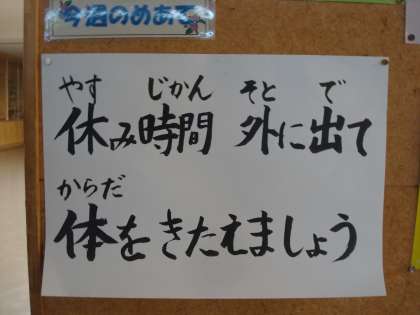 今週のめあて
やす じかん そと で
休み時間 外に出て
からだ
体をきたえましょう